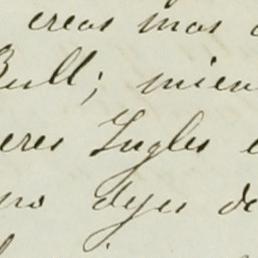 creas mas
Bull; mien
eres Ingles e
no dejes de